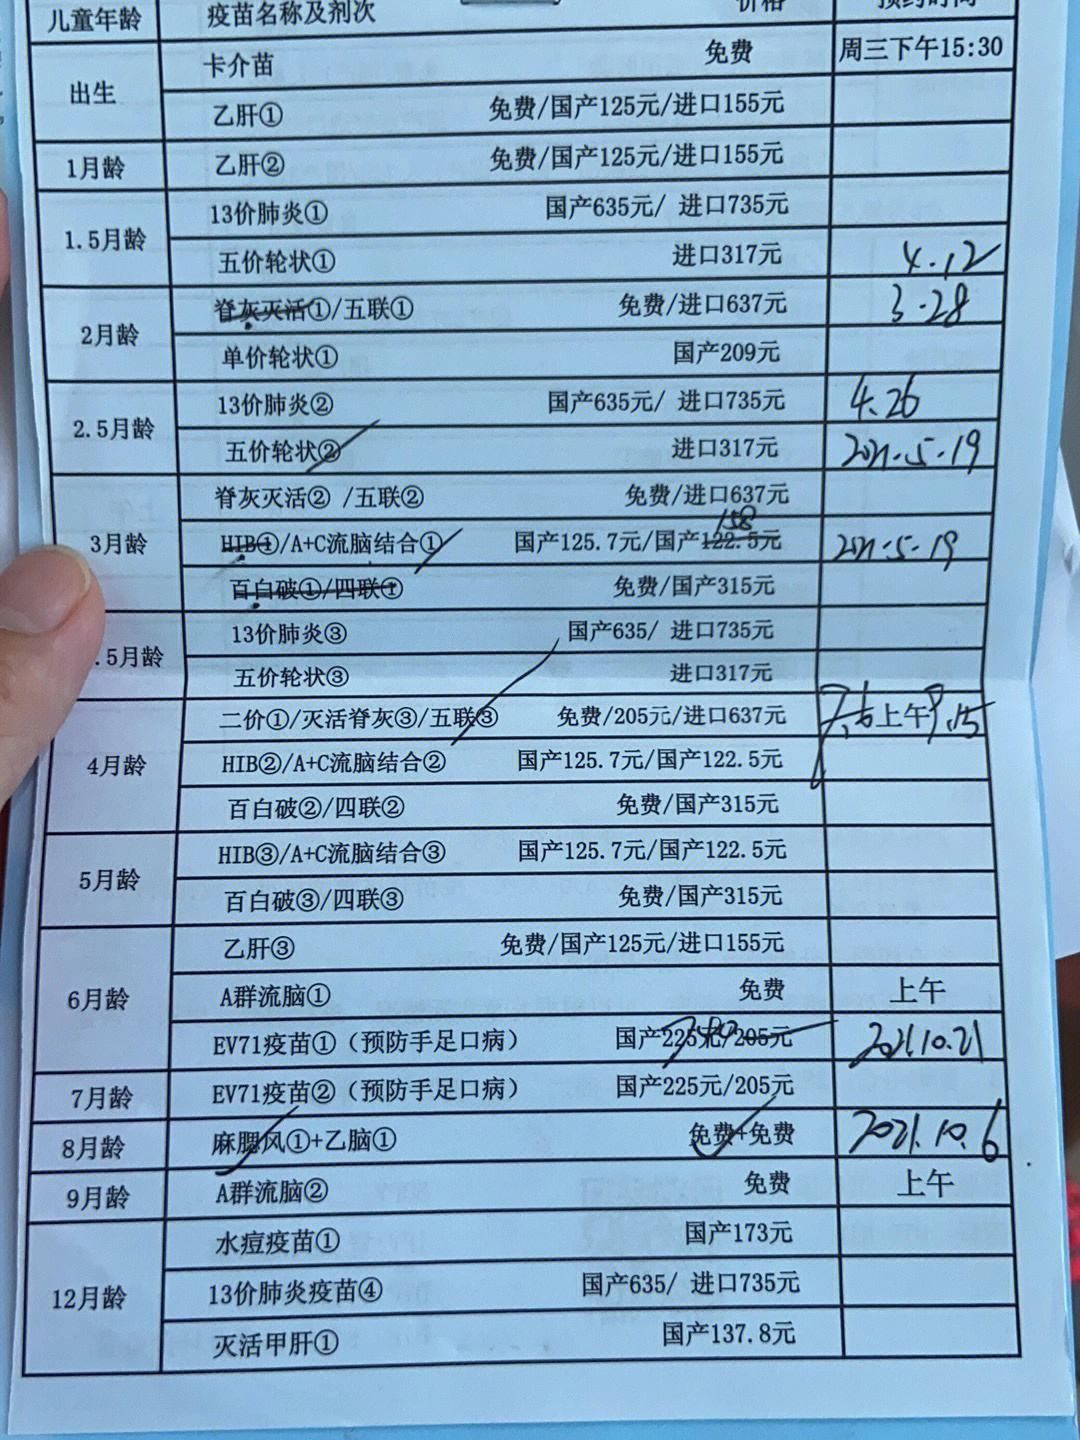 儿童年龄 疫苗名称及剂次 价格 预约时间
出生 卡介苗 免费 周三下午15:30
乙肝① 免费/国产125元/进口155元
1月龄 乙肝② 免费/国产125元/进口155元
1.5月龄 13价肺炎① 国产635元/ 进口735元
五价轮状① 进口317元 4.12
2月龄 脊灰灭活①/五联① 免费/进口637元 3.28
单价轮状① 国产209元
2.5月龄 13价肺炎② 国产635元/ 进口735元 4.26
五价轮状② 进口317元 2021.5.19
3月龄 脊灰灭活② /五联② 免费/进口637元
158
HIB①/A+C流脑结合① 国产125.7元/国产122.5元 2021.5.19
百白破①/四联① 免费/国产315元
.5月龄 13价肺炎③ 国产635/ 进口735元
五价轮状③ 进口317元
4月龄 二价①/灭活脊灰③/五联③ 免费/205元/进口637元 7.6上午9.15
HIB②/A+C流脑结合② 国产125.7元/国产122.5元
百白破②/四联② 免费/国产315元
5月龄 HIB③/A+C流脑结合③ 国产125.7元/国产122.5元
百白破③/四联③ 免费/国产315元
6月龄 乙肝③ 免费/国产125元/进口155元
A群流脑① 免费 上午
EV71疫苗①（预防手足口病） 国产225元/205元 2021.10.21
7月龄 EV71疫苗②（预防手足口病） 国产225元/205元
8月龄 麻腮风①+乙脑① 免费+免费 2021.10.6
9月龄 A群流脑② 免费 上午
12月龄 水痘疫苗① 国产173元
13价肺炎疫苗④ 国产635/ 进口735元
灭活甲肝① 国产137.8元